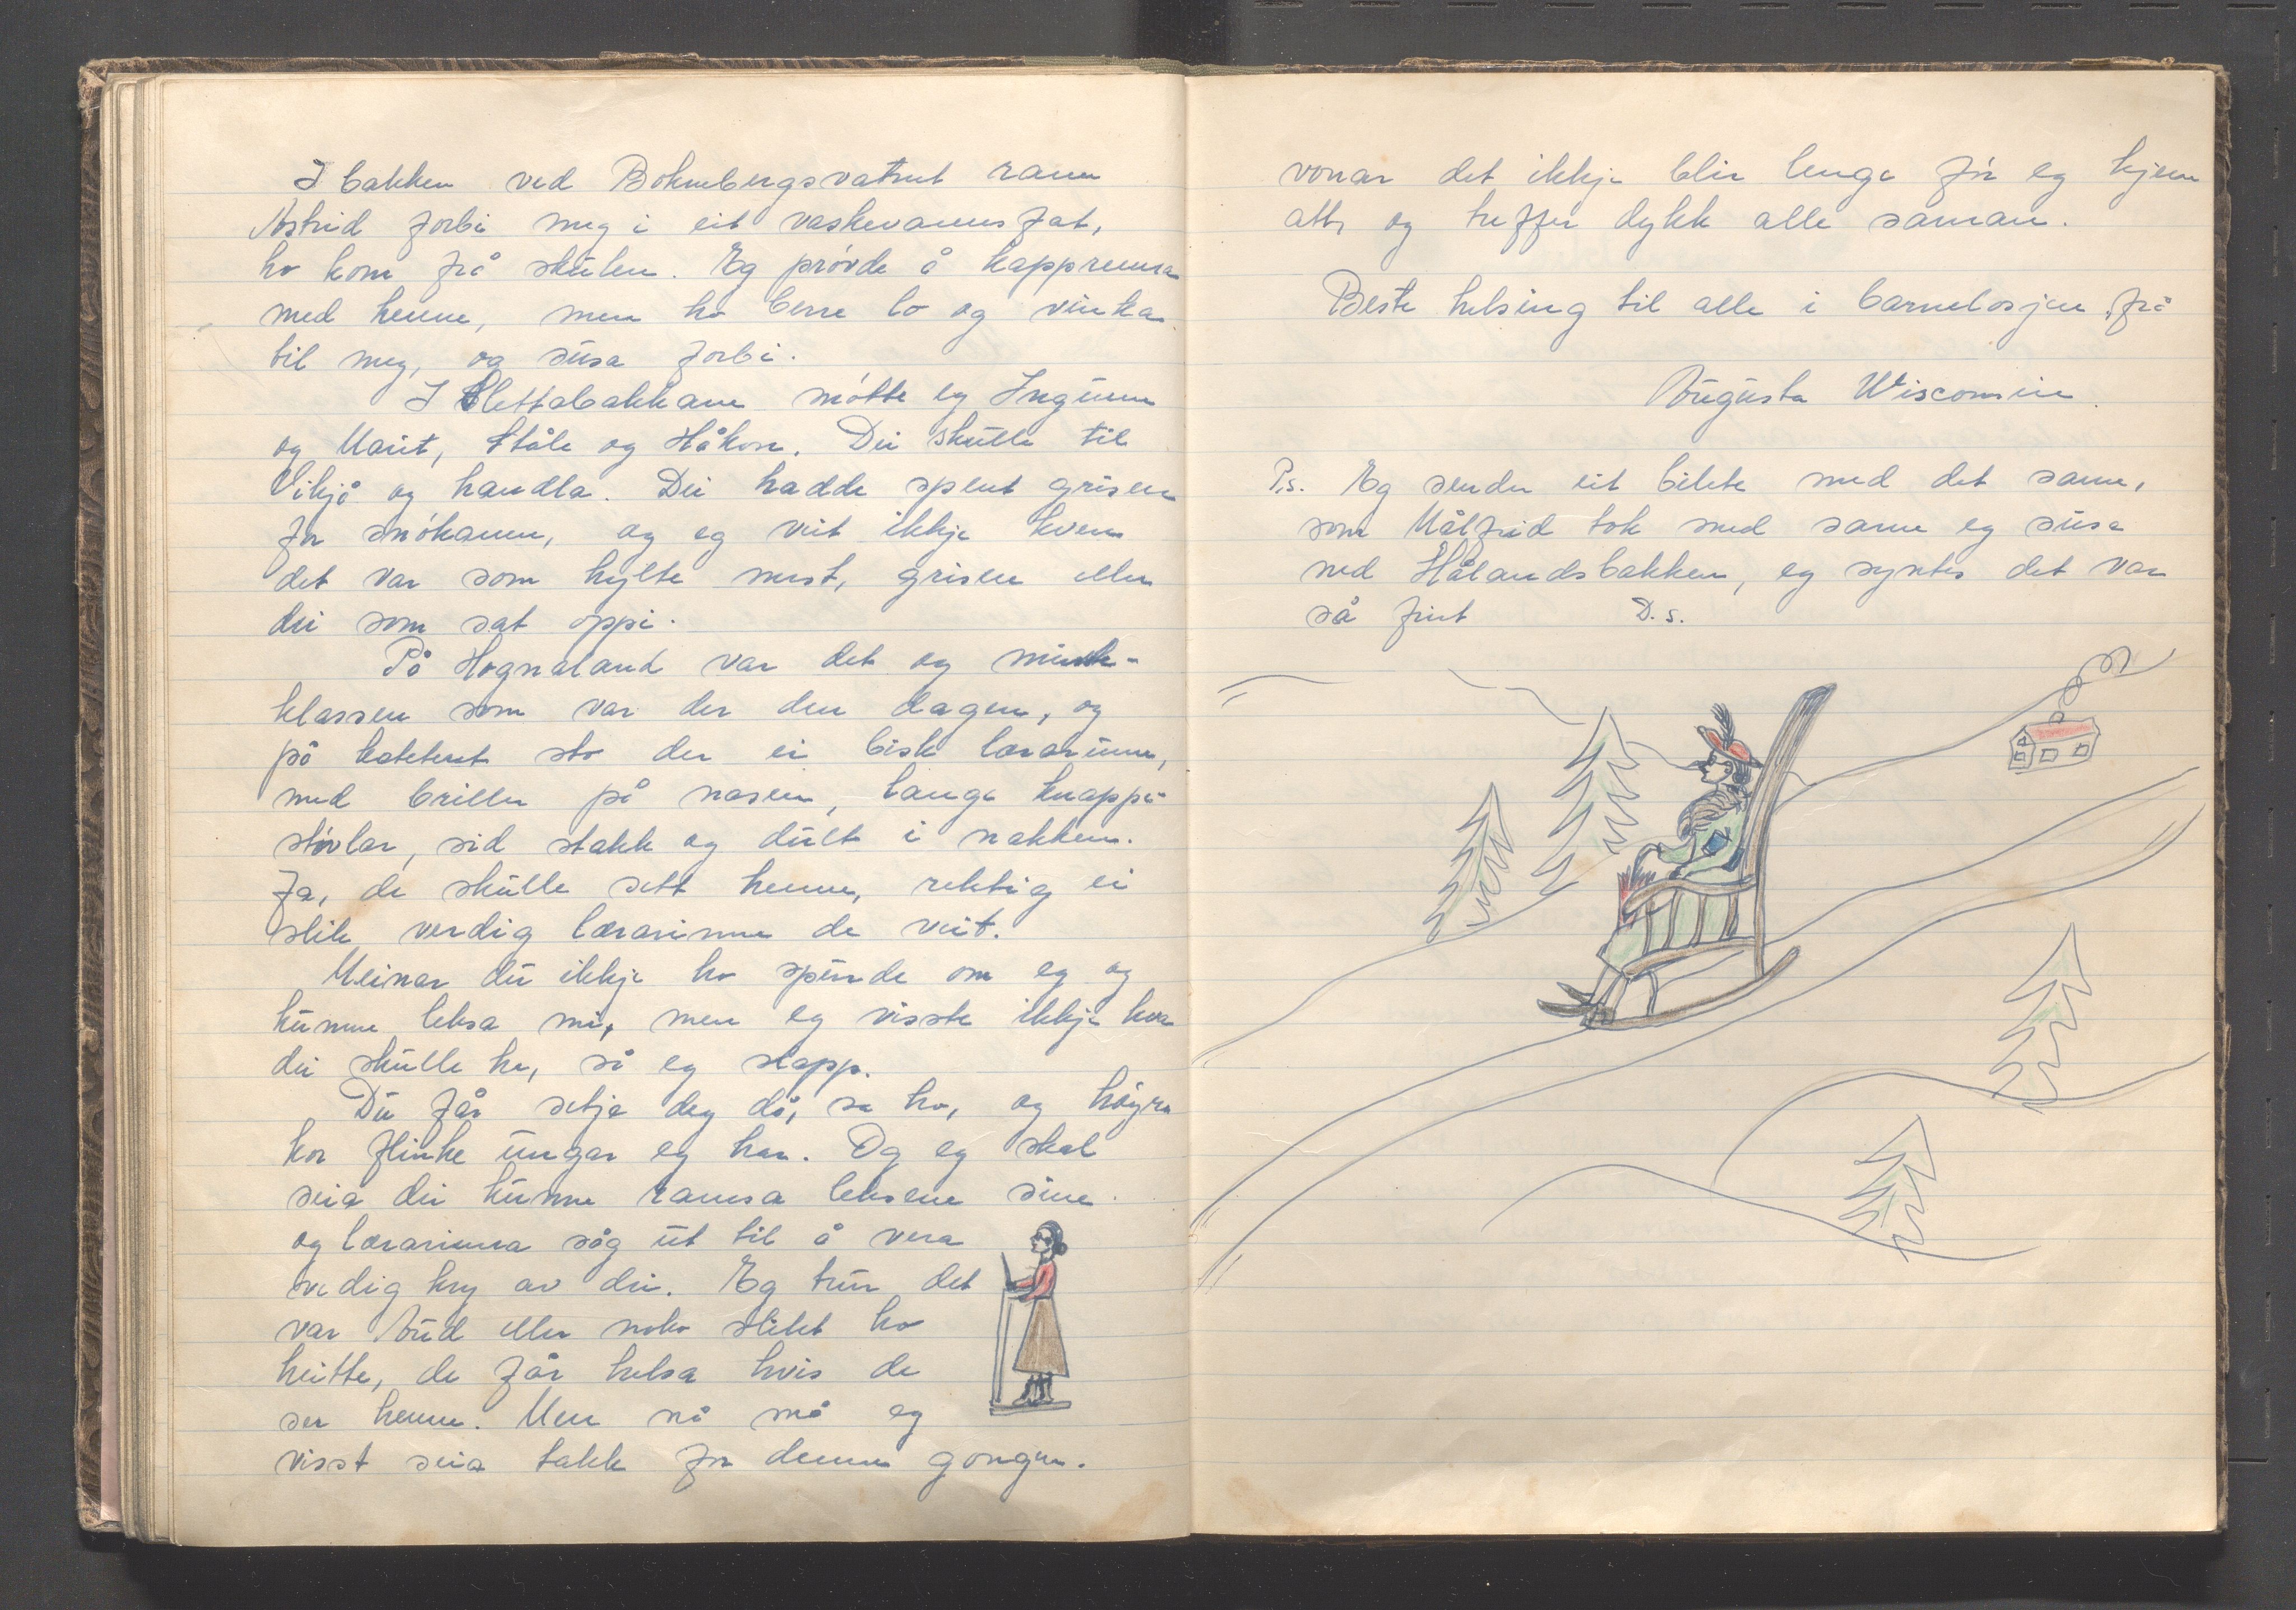 I bakken ved Boknbergsvatnet rann
Astrid forbi meg i eit vaskevannsfat,
ho kom frå skulen. Eg prøvde å kapprenna
med henne, men ho berre lo og vinka
til meg, og susa forbi.
I Slettabakkane møtte eg Ingunn
og Marit, Ståle og Håkon. Dei skulle til
Vikjå og handla. Dei hadde spent grisen
for snøkanen, og eg veit ikkje kven
det var som hylte mest, grisen eller
dei som sat oppi.
På Hognaland var det og
klassen som var der den dagen, og
på kateteret sto der ei bisk lærarinne,
med briller på nasen, lange knappe-
støvlar, sid stakk og dult i nakken.
Ja, de skulle sett henne, rektig ei
slik verdig lærarinne de veit.
Meinar du ikkje ho spurde om eg og
kunne leksa mi, men eg visste ikkje kva
dei skulle ha, så eg slapp.
Du får setja deg då, sa ho, og høyra
kor flinke ungar eg har. Og eg skal
seia dei kunne ramsa leksene sine
og lærarinna såg ut til å vera
veldig kry av dei. Eg trur det
var Aud eller noko slikt ho
heitte, de får helsa hvis de
ser henne. Men nå må eg
visst seia takk for denne gongen.
vonar det ikkje blir lenge før eg kjem
att, og treffer dykk alle saman.
Beste helsing til alle i barnelosjen frå
Augusta Wisconsin.
P.s. Eg sender eit bilete med det same,
som Målfrid tok med same eg susa
ned Hålandsbakken, eg syntes det var
så fint D.s.